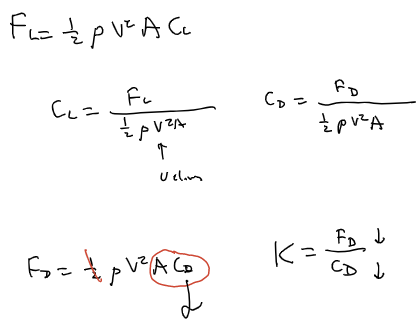 F_L = ½ ρ V² A C_L
C_L = F_L / (½ ρ V² A)
C_D = F_D / (½ ρ V² A)
↑
F_D = ½ ρ V² A C_D
K = F_D ↓ / C_D ↓